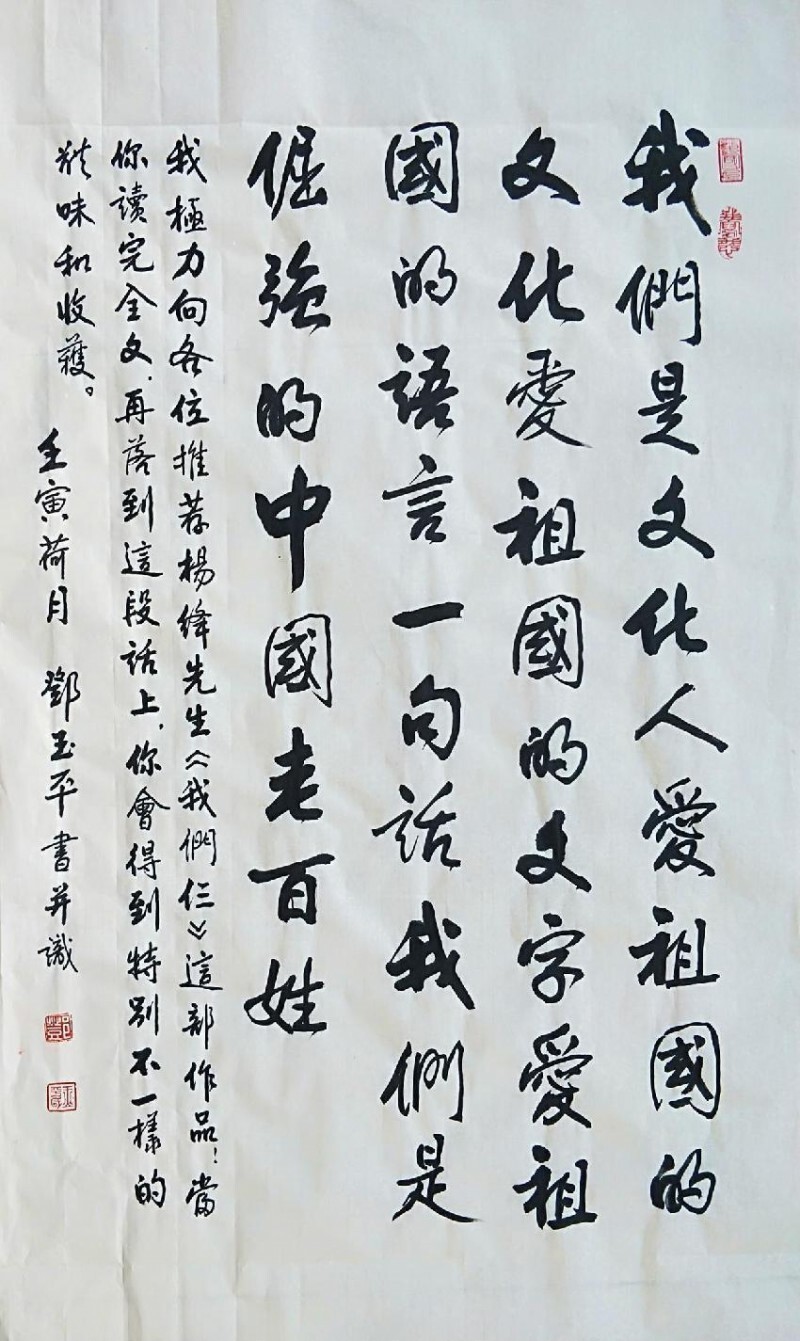 我們是文化人愛祖國的
文化愛祖國的文字愛祖
國的語言一句話我們是
倔強的中國老百姓
我極力向各位推荐楊絳先生《我們仨》這部作品！當
你讀完全文，再落到這段話上，你會得到特别不一樣的
味和收獲。
壬寅荷月 鄧玉平書并識